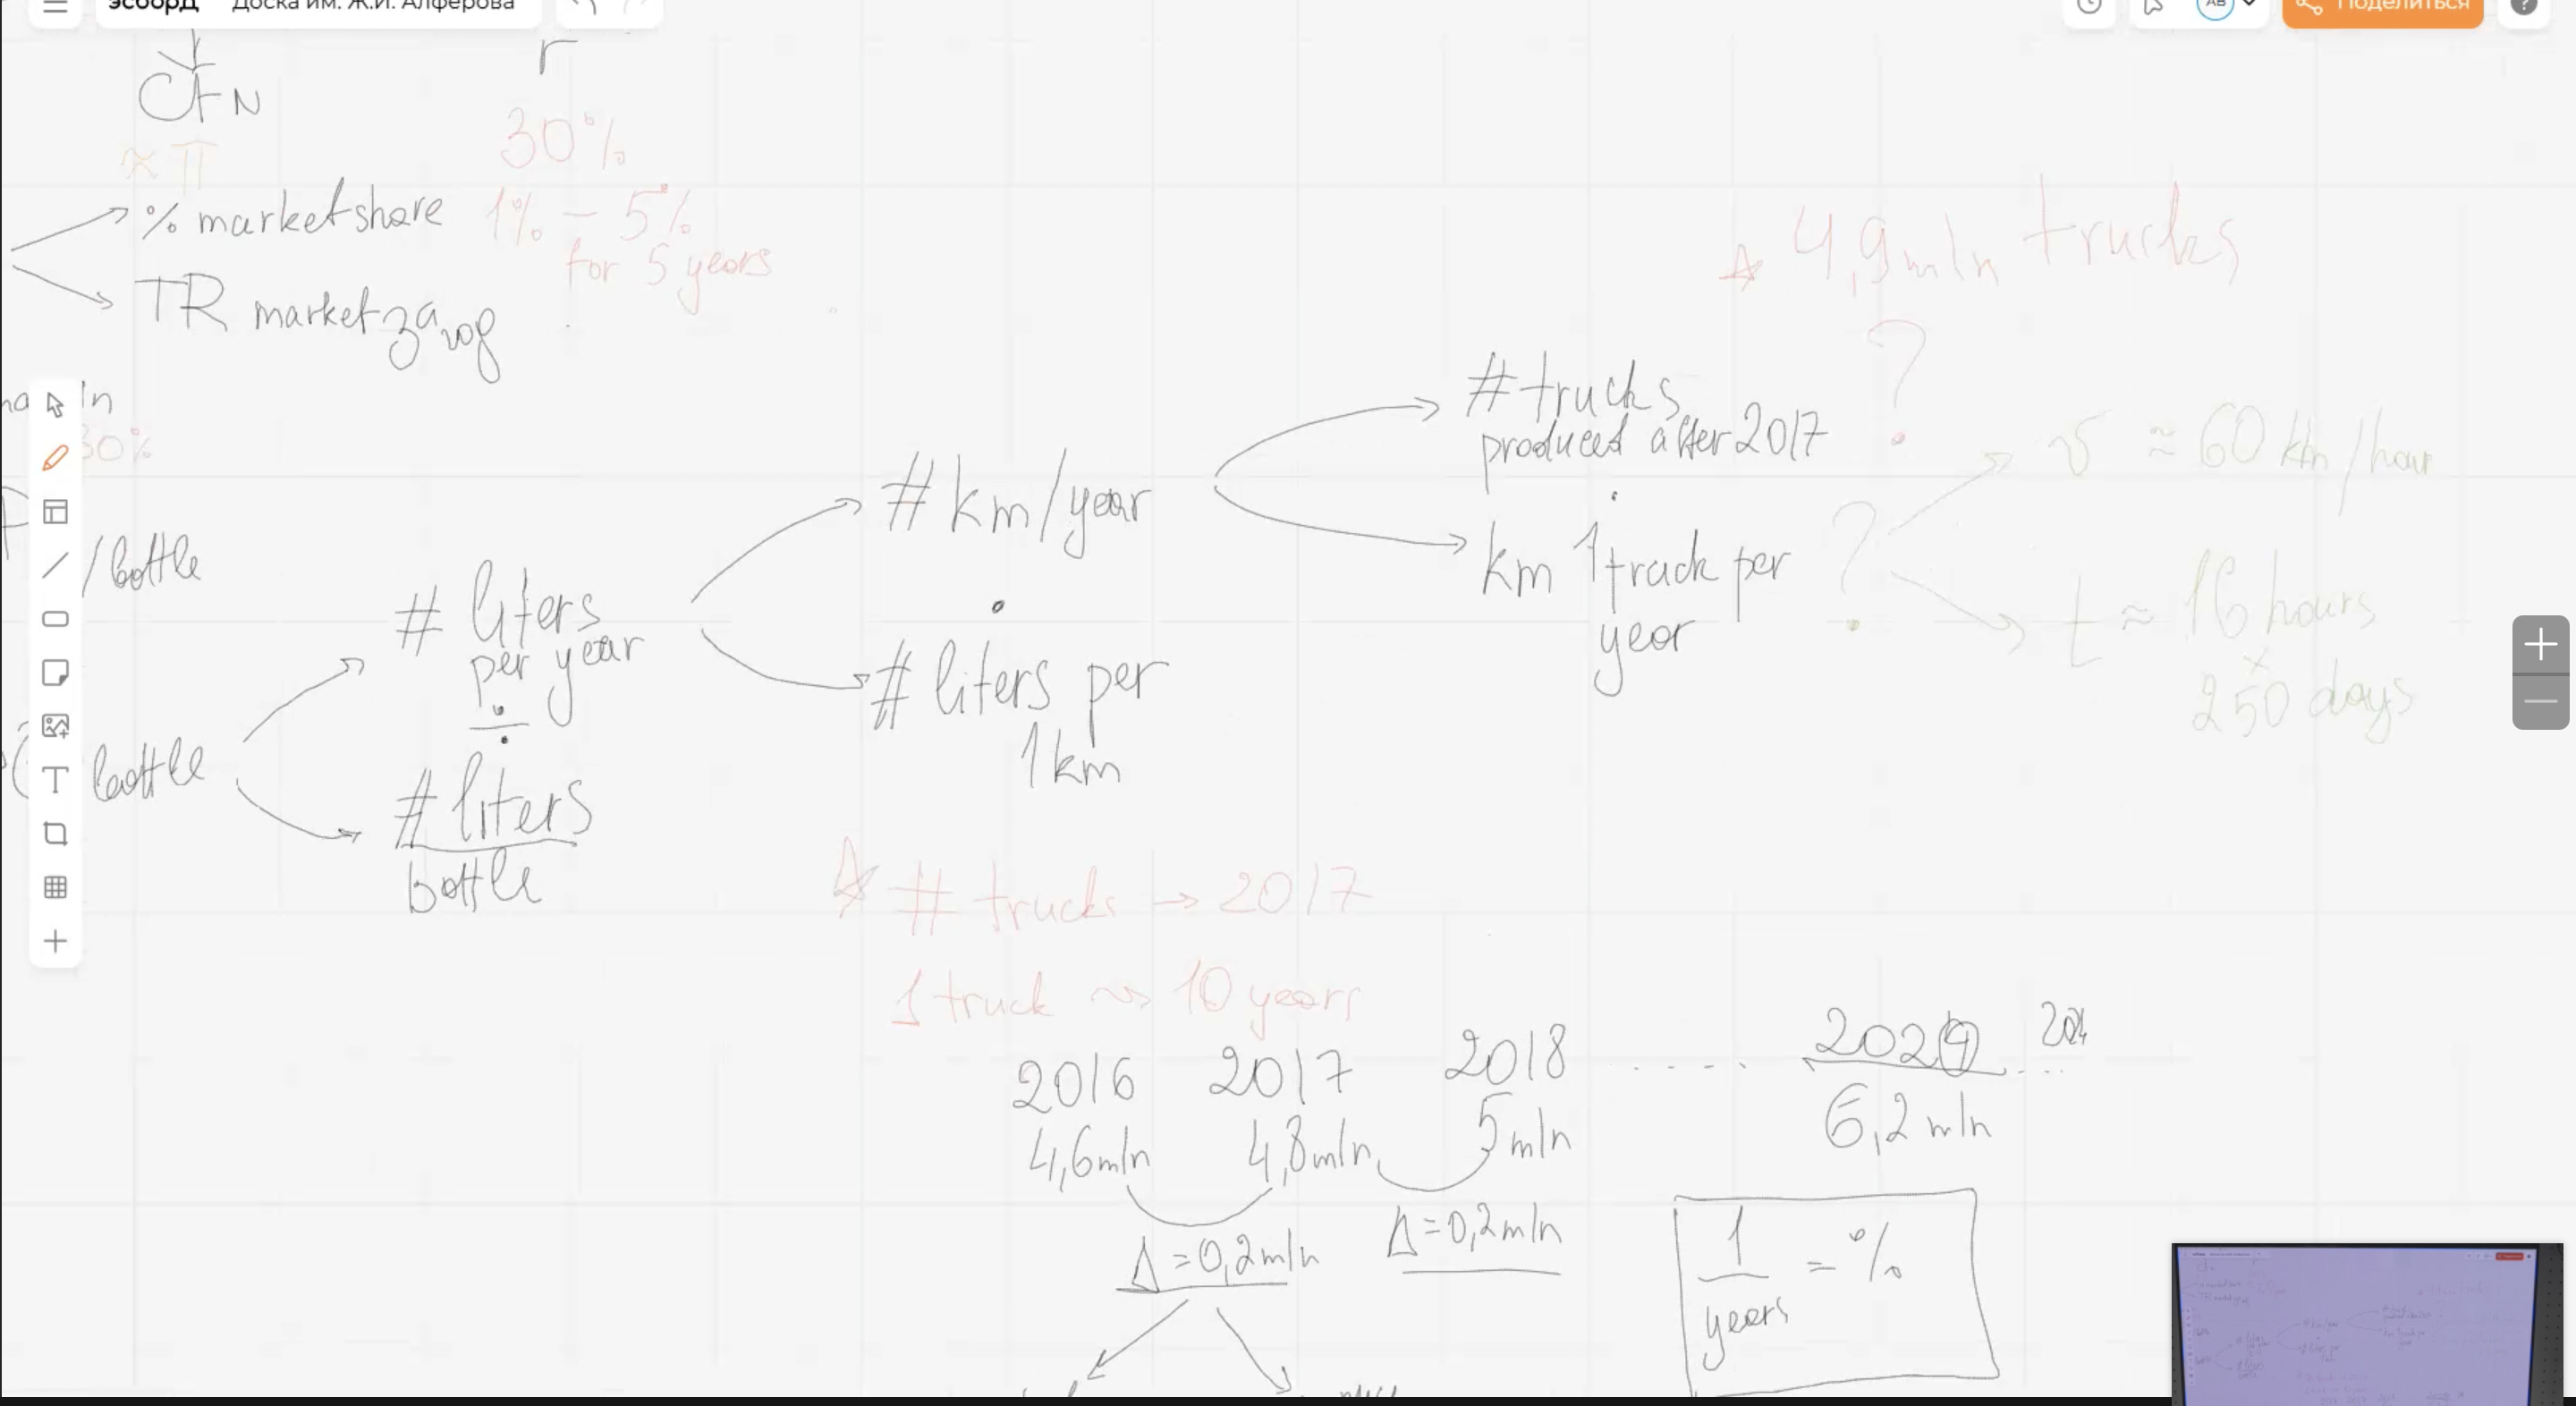 эсборд Доска им. Ж.И. Алферова
AB Поделиться ?
CF N
r
≈ π
30%
% market share 1% - 5%
for 5 years
TR market завод
30%
/bottle
bottle
# liters
per year
÷
# liters
bottle
# km/year
·
# liters per
1 km
# trucks
produced after 2017
·
km 1 track per
year
4,9 mln trucks
?
?
v ≈ 60 km/hour
t ≈ 16 hours
×
250 days
# trucks → 2017
1 truck ~> 10 years
2016 2017 2018 ..... 2024 ...
4,6 mln 4,8 mln 5 mln 6,2 mln
Δ = 0,2 mln Δ = 0,2 mln
1
years = %